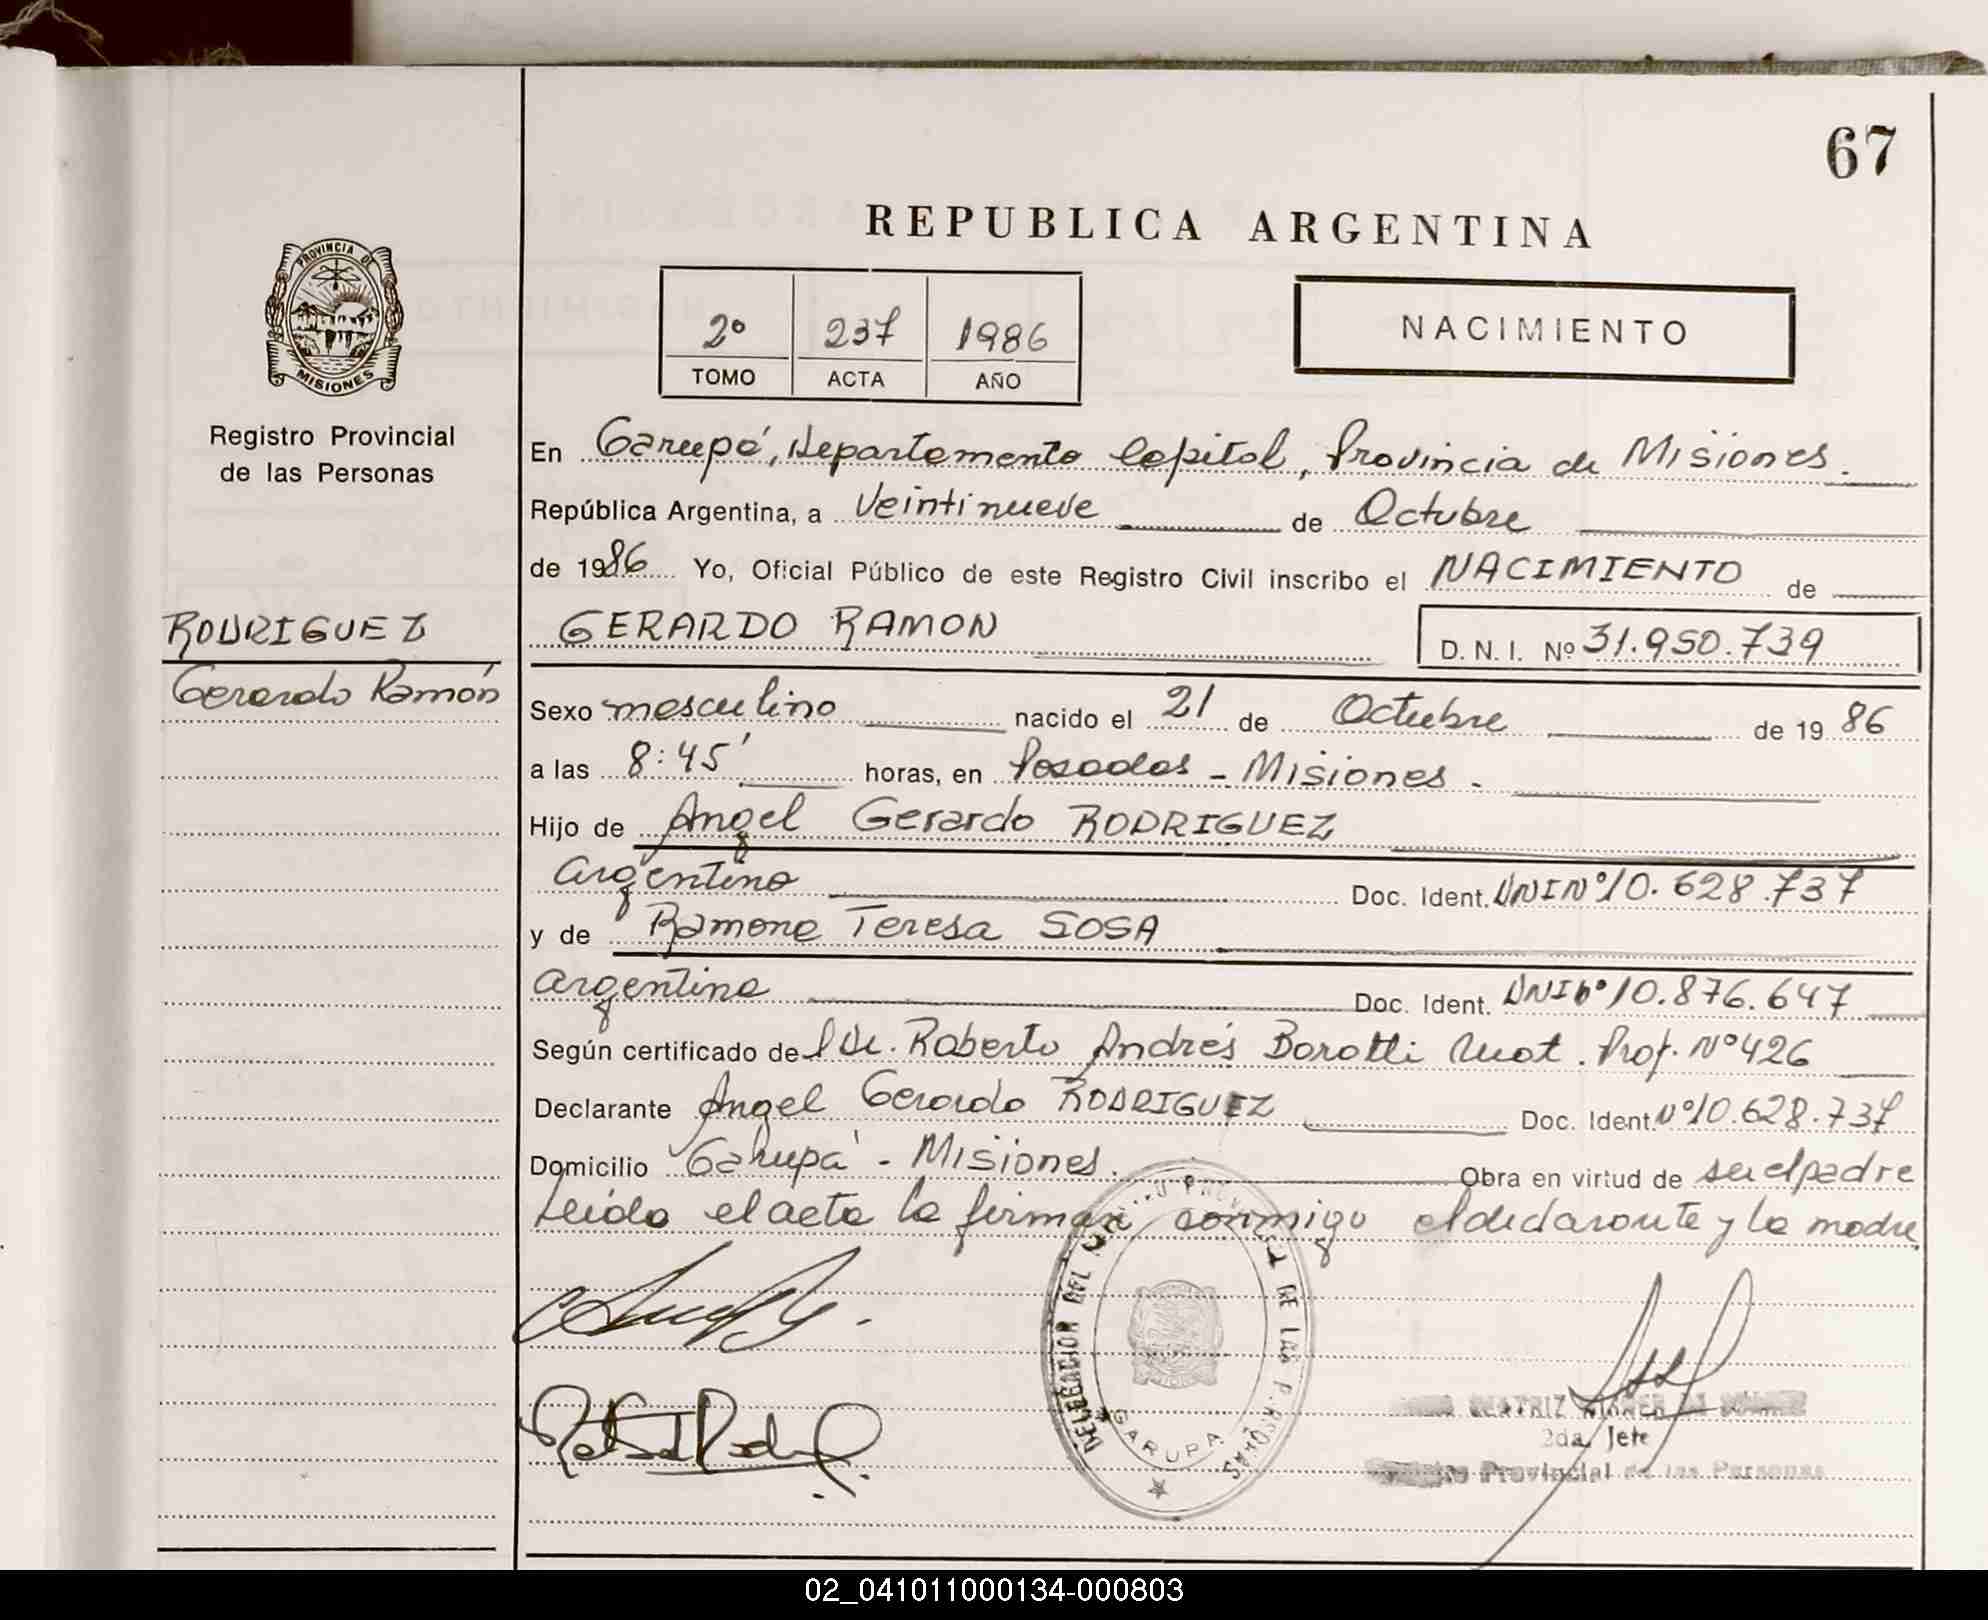 67
REPUBLICA ARGENTINA
PROVINCIA DE
MISIONES
2º 237 1986
TOMO ACTA AÑO
NACIMIENTO
Registro Provincial
de las Personas
En Garupá, Departamento Capital, Provincia de Misiones.
República Argentina, a Veintinueve de Octubre
de 1986 Yo, Oficial Público de este Registro Civil inscribo el NACIMIENTO de
RODRIGUEZ
Gerardo Ramón
GERARDO RAMON
D. N. I. Nº 31.950.739
Sexo masculino nacido el 21 de Octubre de 19 86
a las 8:45' horas, en Posadas - Misiones.
Hijo de Angel Gerardo RODRIGUEZ
argentino Doc. Ident. DNI Nº 10.628.737
y de Ramona Teresa SOSA
argentina Doc. Ident. DNI Nº 10.876.647
Según certificado de Dr. Roberto Andrés Borotti Mat. Prof. Nº 426
Declarante Angel Gerardo RODRIGUEZ Doc. Ident Nº 10.628.737
Domicilio Garupá - Misiones. Obra en virtud de ser el padre
Leída el acta la firman conmigo el declarante y la madre
DELEGACION DEL DE LAS PERSONAS
GARUPA
BEATRIZ
2da. Jefe
Provincial de las Personas
02_041011000134-000803